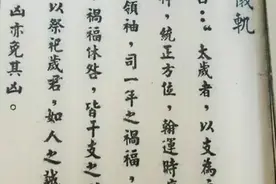 儀軌
：“太歲者，以支為
，統正方位，翰運時
領袖，司一年之禍福，
禍福休咎，皆干支之
以祭祀歲君，如人之誠
凶亦免其凶。